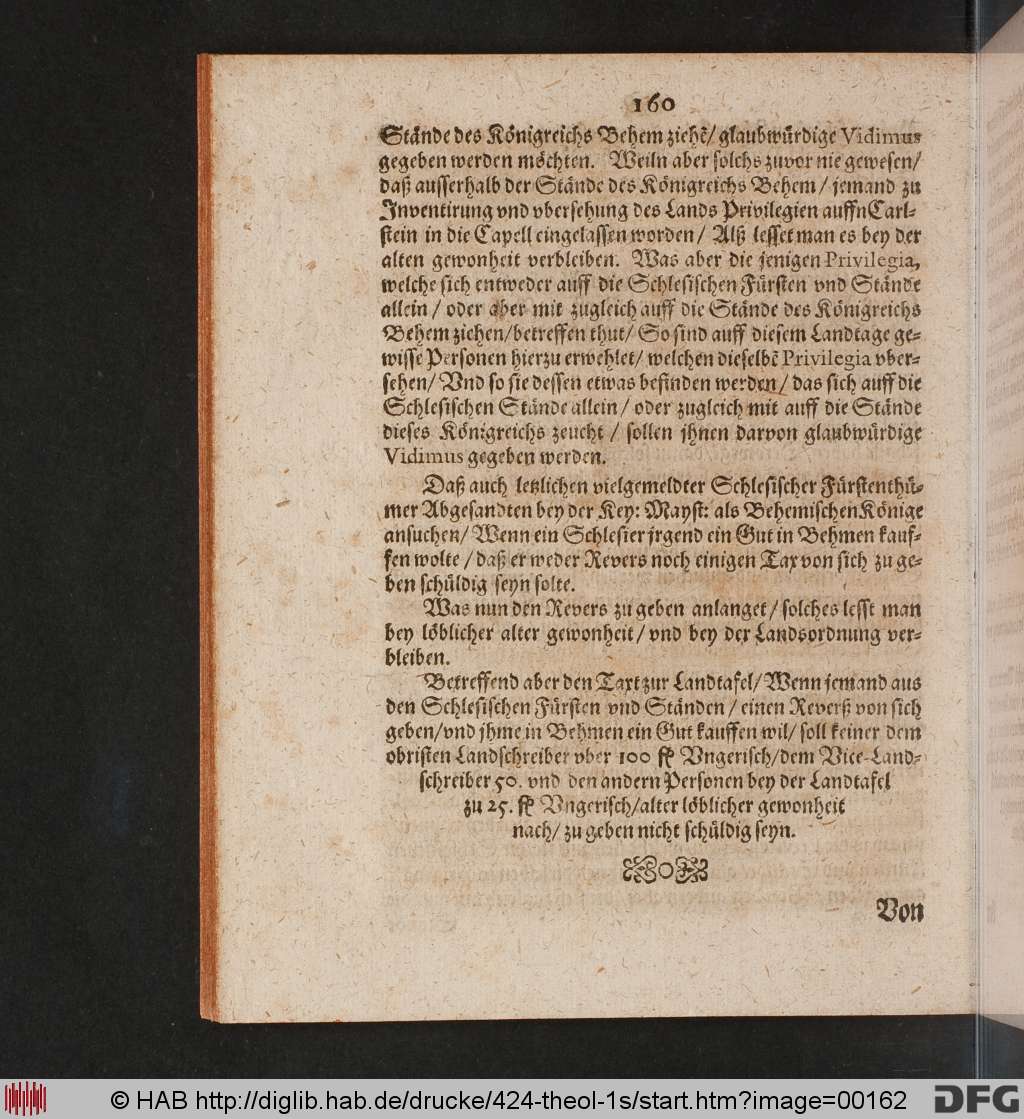 160
Stände des Königreichs Behem ziehẽ/ glaubwürdige Vidimus
gegeben werden möchten. Weiln aber solchs zuvor nie gewesen/
daß ausserhalb der Stände des Königreichs Behem/ jemand zu
Inventirung vnd vbersehung des Lands Privilegien auffn Carl-
stein in die Capell eingelassen worden/ Alß lesset man es bey der
alten gewonheit verbleiben. Was aber die jenigen Privilegia,
welche sich entweder auff die Schlesischen Fürsten vnd Stände
allein/ oder aber mit zugleich auff die Stände des Königreichs
Behem ziehen/ betreffen thut/ So sind auff diesem Landtage ge-
wisse Personen hierzu erwehlet/ welchen dieselbẽ Privilegia vber-
sehen/ Vnd so sie dessen etwas befinden werden/ das sich auff die
Schlesischen Stände allein/ oder zugleich mit auff die Stände
dieses Königreichs zeucht/ sollen jhnen darvon glaubwürdige
Vidimus gegeben werden.
Daß auch letzlichen vielgemeldter Schlesischer Fürstenthü-
mer Abgesandten bey der Key: Mayst: als Behemischen Könige
ansuchen/ Wenn ein Schlesier jrgend ein Gut in Behmen kauf-
fen wolte/ daß er weder Revers noch einigen Tax von sich zu ge-
ben schüldig seyn solte.
Was nun den Revers zu geben anlanget/ solches lesst man
bey löblicher alter gewonheit/ vnd bey der Landsordnung ver-
bleiben.
Betreffend aber den Taxt zur Landtafel/ Wenn jemand aus
den Schlesischen Fürsten vnd Ständen/ einen Reverß von sich
geben/ vnd jhme in Behmen ein Gut kauffen wil/ soll keiner dem
obristen Landschreiber vber 100 fl Vngerisch/ dem Vice-Land-
schreiber 50. vnd den andern Personen bey der Landtafel
zu 25. fl Vngerisch/ alter löblicher gewonheit
nach/ zu geben nicht schüldig seyn.
Von
© HAB http://diglib.hab.de/drucke/424-theol-1s/start.htm?image=00162
DFG